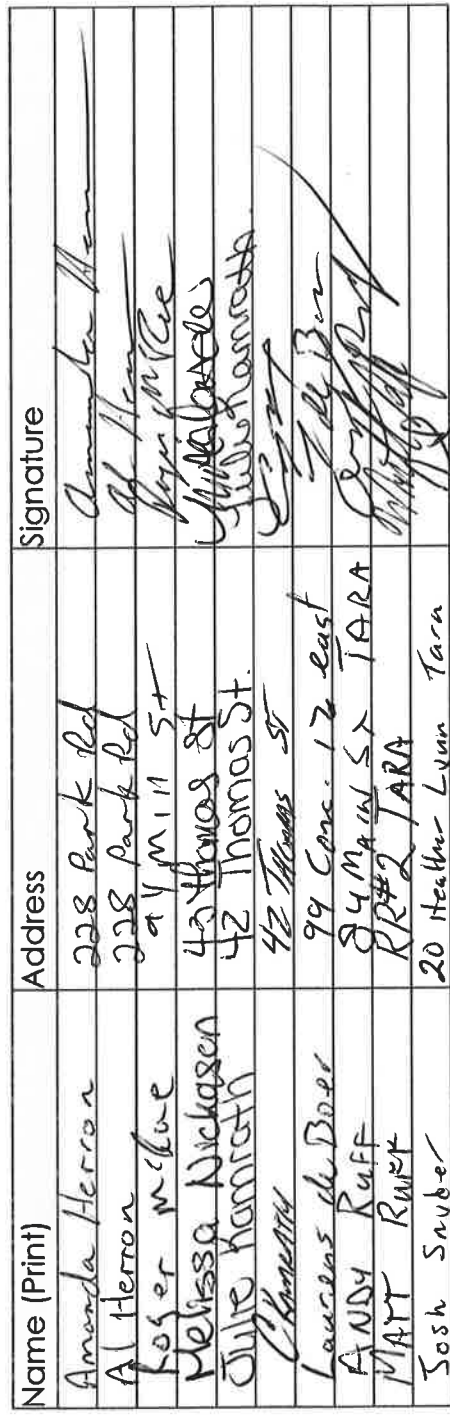 Name (Print) Address Signature
Amanda Herron 228 Park Rd
Al Herron 228 Park Rd
Roger McRae 94 Mill St Roger McRae
Melissa Nickasen 43 Thomas St
Julie Kamrath 42 Thomas St. Julie Kamrath.
C Kamrath 42 Thomas ST
Laurens de Boer 99 Conc. 12 east L de Boer
ANDY RUFF 84 MAIN ST TARA
MATT RUFF RR#2 TARA
Josh Snyber 20 Heather Lynn Tara